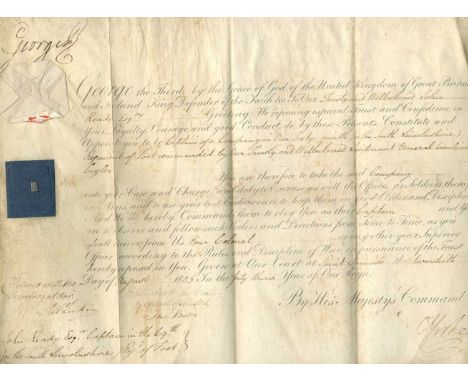 George R
George the Third by the Grace of God of the United Kingdom of Great Britain
and Ireland King, Defender of the Faith &c To Our Trusty and Wellbeloved John
Ready Esqr. Greeting We reposing especial Trust and Confidence in
Your Loyalty Courage and good Conduct, do by these Presents Constitute and
Appoint you to be Captain of a Company in Our Sixty ninth (or the South Lincolnshire)
Regiment of Foot commanded by Our Trusty and Wellbeloved Lieutenant General
Cuyler
You are therefore to take the said Company
into your Care and Charge and duly to Exercise as well the Officers as Soldiers thereof
in Arms and to use your best Endeavours to keep them in good Order and Discipline
And We do hereby Command them to Obey you as their Captain and
are to Observe and follow such Orders and Directions from Time to Time, as you
shall receive from Us Your Colonel or any other your Superior
Officer according to the Rules and Discipline of War in pursuance of the Trust
hereby reposed in You. Given at Our Court at Saint James's the Twentieth
Day of August 1803 In the forty third Year of Our Reign
By His Majesty's Command
Entered with the
Secretary at War
John Ready Esqr. Captain in the 69th
(or the South Lincolnshire) Regt. of Foot